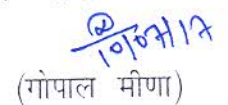 10/07/17
(गोपाल मीणा)